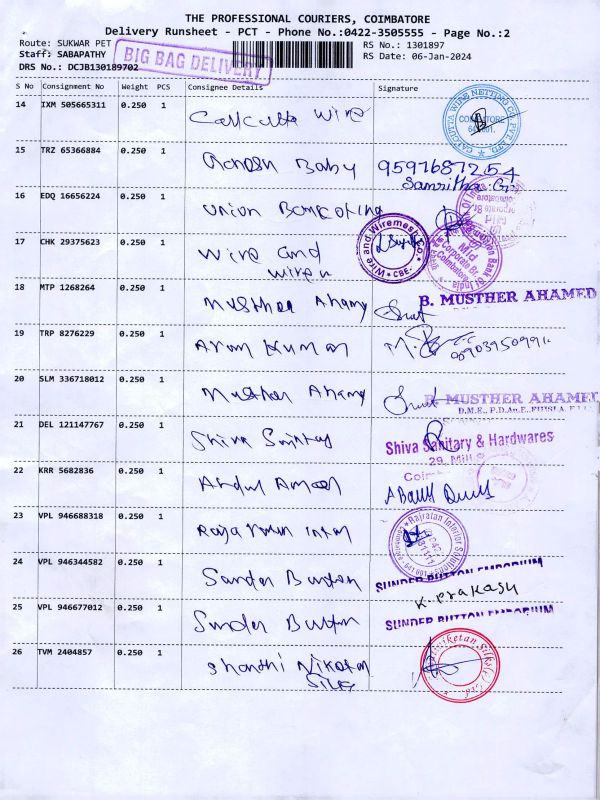 THE PROFESSIONAL COURIERS, COIMBATORE
Delivery Runsheet - PCT - Phone No.:0422-3505555 - Page No.:2
Route: SUKWAR PET RS No.: 1301897
Staff: SABAPATHY RS Date: 06-Jan-2024
DRS No.: DCJB130189702
BIG BAG DELIVERY
S No Consignment No Weight PCS Consignee Details Signature
14 IXM 505665311 0.250 1 Calcutta Wire
CALCUTTA WIRE NETTING CO. PVT. LTD. COIMBATORE 641 001.
15 TRZ 65366884 0.250 1 Ganesh Baby 9597687254
Samritha. G
16 EDQ 16656224 0.250 1 Union Bank of Ina
Union Bank Of India
17 CHK 29375623 0.250 1 Wire and
Wire n
Wire and Wiremesh Co. CBE
Corporate Br. Coimbatore
18 MTP 1268264 0.250 1 Musther Ahamy
B. MUSTHER AHAMED
19 TRP 8276229 0.250 1 Arun Kumar
20 SLM 336718012 0.250 1 Musther Ahamy
B. MUSTHER AHAMED
21 DEL 121147767 0.250 1 Shiva Sanitary
Shiva Sanitary & Hardwares
29, Mill
22 KRR 5682836 0.250 1 Abdul Ameed
23 VPL 946688318 0.250 1 Raja Inter
Rajratan Interior Solutions
24 VPL 946344582 0.250 1 Sander Button
SUNDER BUTTON EMPORIUM
K. Prakash
25 VPL 946677012 0.250 1 Sunder Button
SUNDER BUTTON EMPORIUM
26 TVM 2404857 0.250 1 Shanthi Niketan
Silks